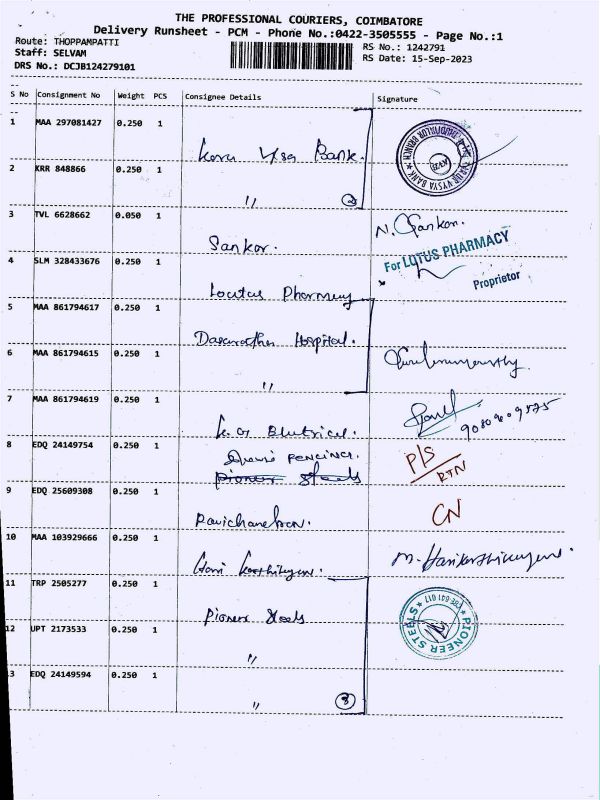 THE PROFESSIONAL COURIERS, COIMBATORE
Delivery Runsheet - PCM - Phone No.:0422-3505555 - Page No.:1
Route: THOPPAMPATTI
RS No.: 1242791
Staff: SELVAM
RS Date: 15-Sep-2023
DRS No.: DCJB124279101
S No Consignment No Weight PCS Consignee Details Signature
1 MAA 297081427 0.250 1
Karur Vysa Bank.
2 KRR 848866 0.250 1
" 2
3 TVL 6628662 0.050 1
Sankar. N. Sankar.
4 SLM 328433676 0.250 1
For LOTUS PHARMACY
Proprietor
Locutus Pharmacy
5 MAA 861794617 0.250 1
Dasarathan Hospital.
6 MAA 861794615 0.250 1
"
7 MAA 861794619 0.250 1
8 EDQ 24149754 0.250 1
FENCING.
P/S
RTN
Pioneer Steels
9 EDQ 25609308 0.250 1
CN
Ravichandran.
10 MAA 103929666 0.250 1
Hari Karthikeyan.
11 TRP 2505277 0.250 1
Pioneer Steels
PIONEER STEELS
12 UPT 2173533 0.250 1
"
13 EDQ 24149594 0.250 1
" 3